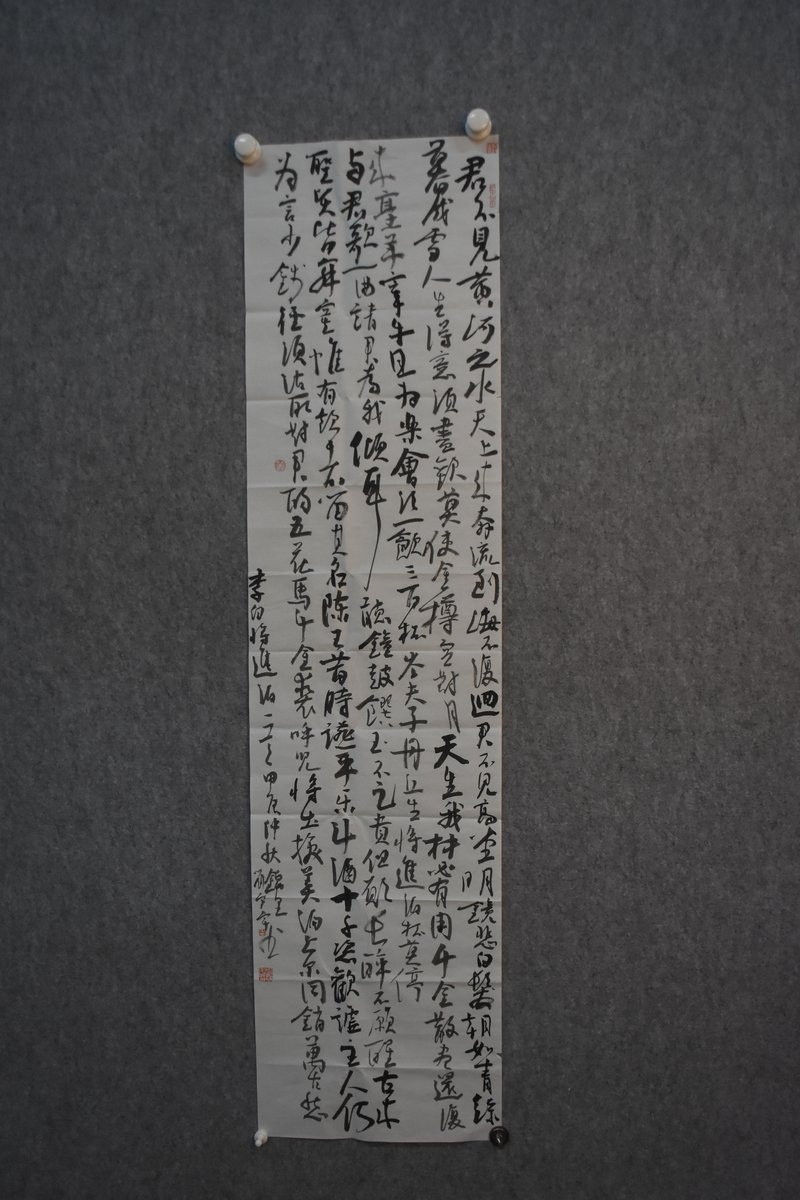 君不見黃河之水天上来奔流到海不復迴君不見高堂明鏡悲白髮朝如青絲
暮成雪人生得意須盡歡莫使金樽空對月天生我材必有用千金散盡還復
来烹羊宰牛且為樂會須一飲三百杯岑夫子丹丘生將進酒杯莫停
与君歌一曲請君為我傾耳聽鐘鼓饌玉不足貴但願長醉不願醒古来
聖賢皆寂寞惟有飲者留其名陳王昔時讌平樂斗酒十千恣歡謔主人何
為言少錢徑須沽取對君酌五花馬千金裘呼兒將出換美酒与爾同銷萬古愁
李白將進酒一首 仲秋